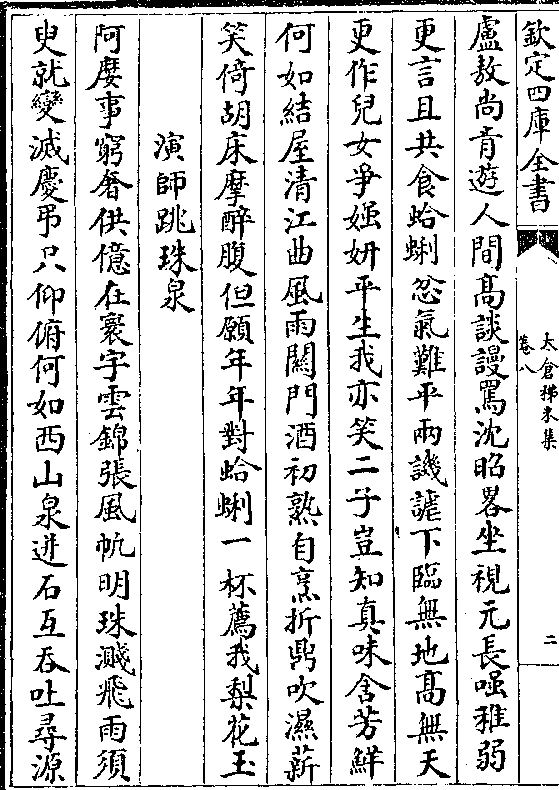 欽定四庫全書
太倉稊米集
卷八
二
盧敖尚肯遊人間高談謾罵沈昭畧坐視元長嗤稚弱
更言且共食蛤蜊忿氣難平兩譏謔下臨無地高無天
更作兒女爭媸妍平生我亦笑二子豈知真味含芳鮮
何如結屋清江曲風雨闗門酒初熟自烹折鼎吹濕薪
笑倚胡床摩醉腹但願年年對蛤蜊一杯薦我梨花玉
演師跳珠泉
阿㜷事窮奢供億在寰宇雲錦張風帆明珠濺飛雨須
臾就變滅慶弔只仰俯何如西山泉迸石互吞吐尋源